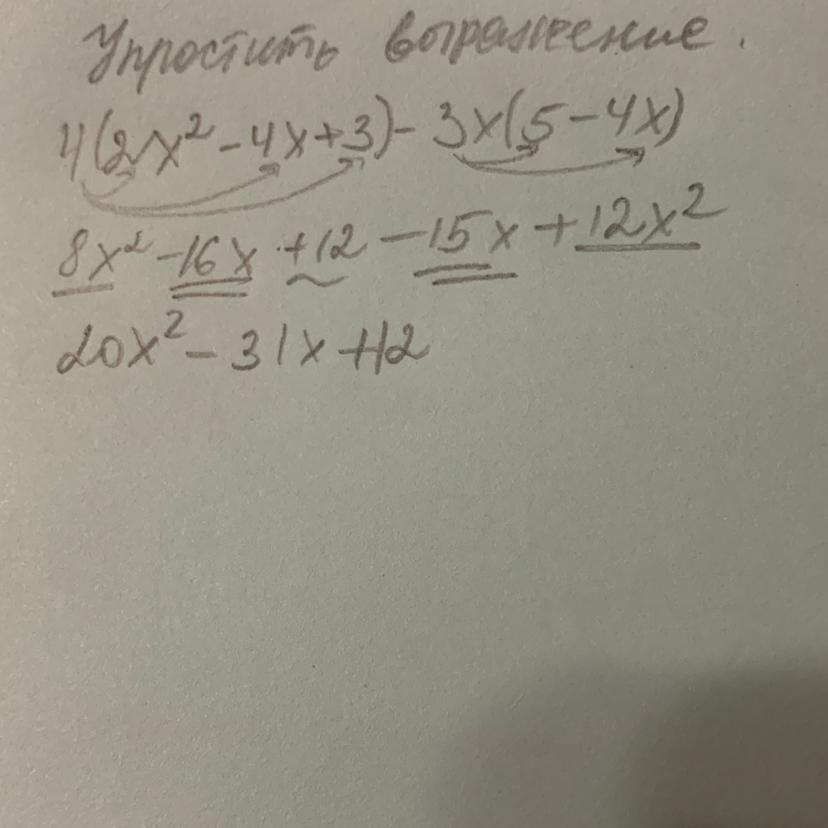 Упростить выражение.
4(2x² - 4x + 3) - 3x(5 - 4x)
8x² - 16x + 12 - 15x + 12x²
20x² - 31x + 12